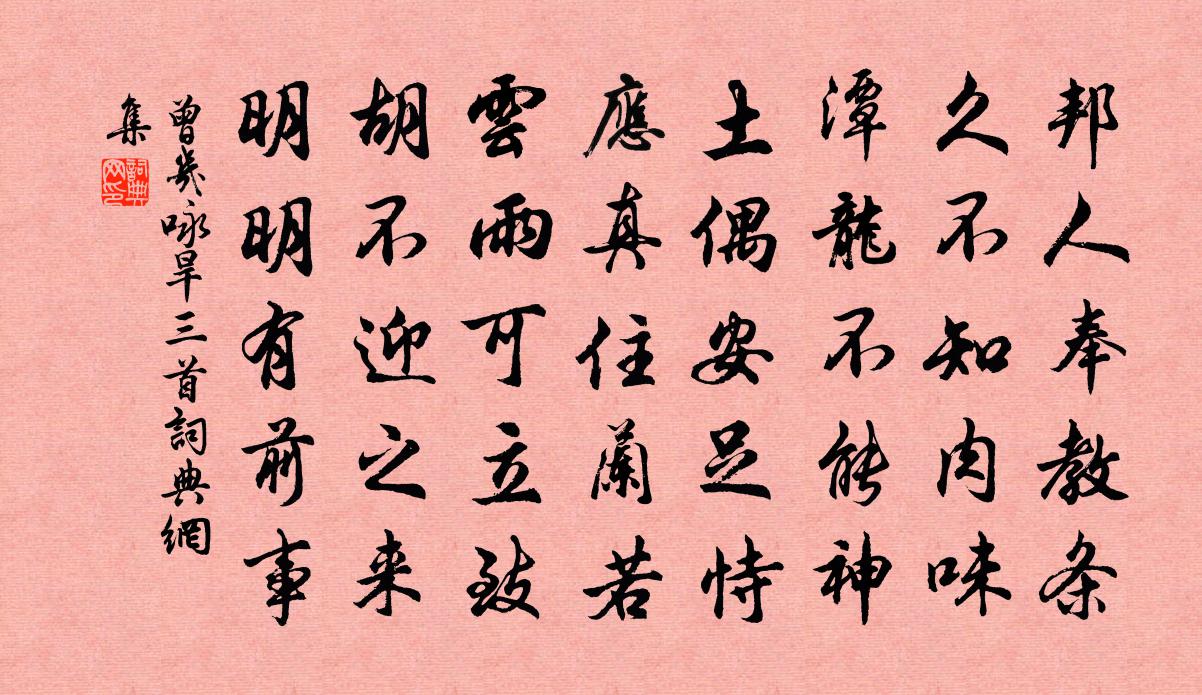 邦人奉教条
久不知肉味
潭龍不能神
土偶安足恃
應真住蘭若
雲雨可立致
胡不迎之来
明明有前事
曾幾咏旱三首詞典網
集
詞典網印